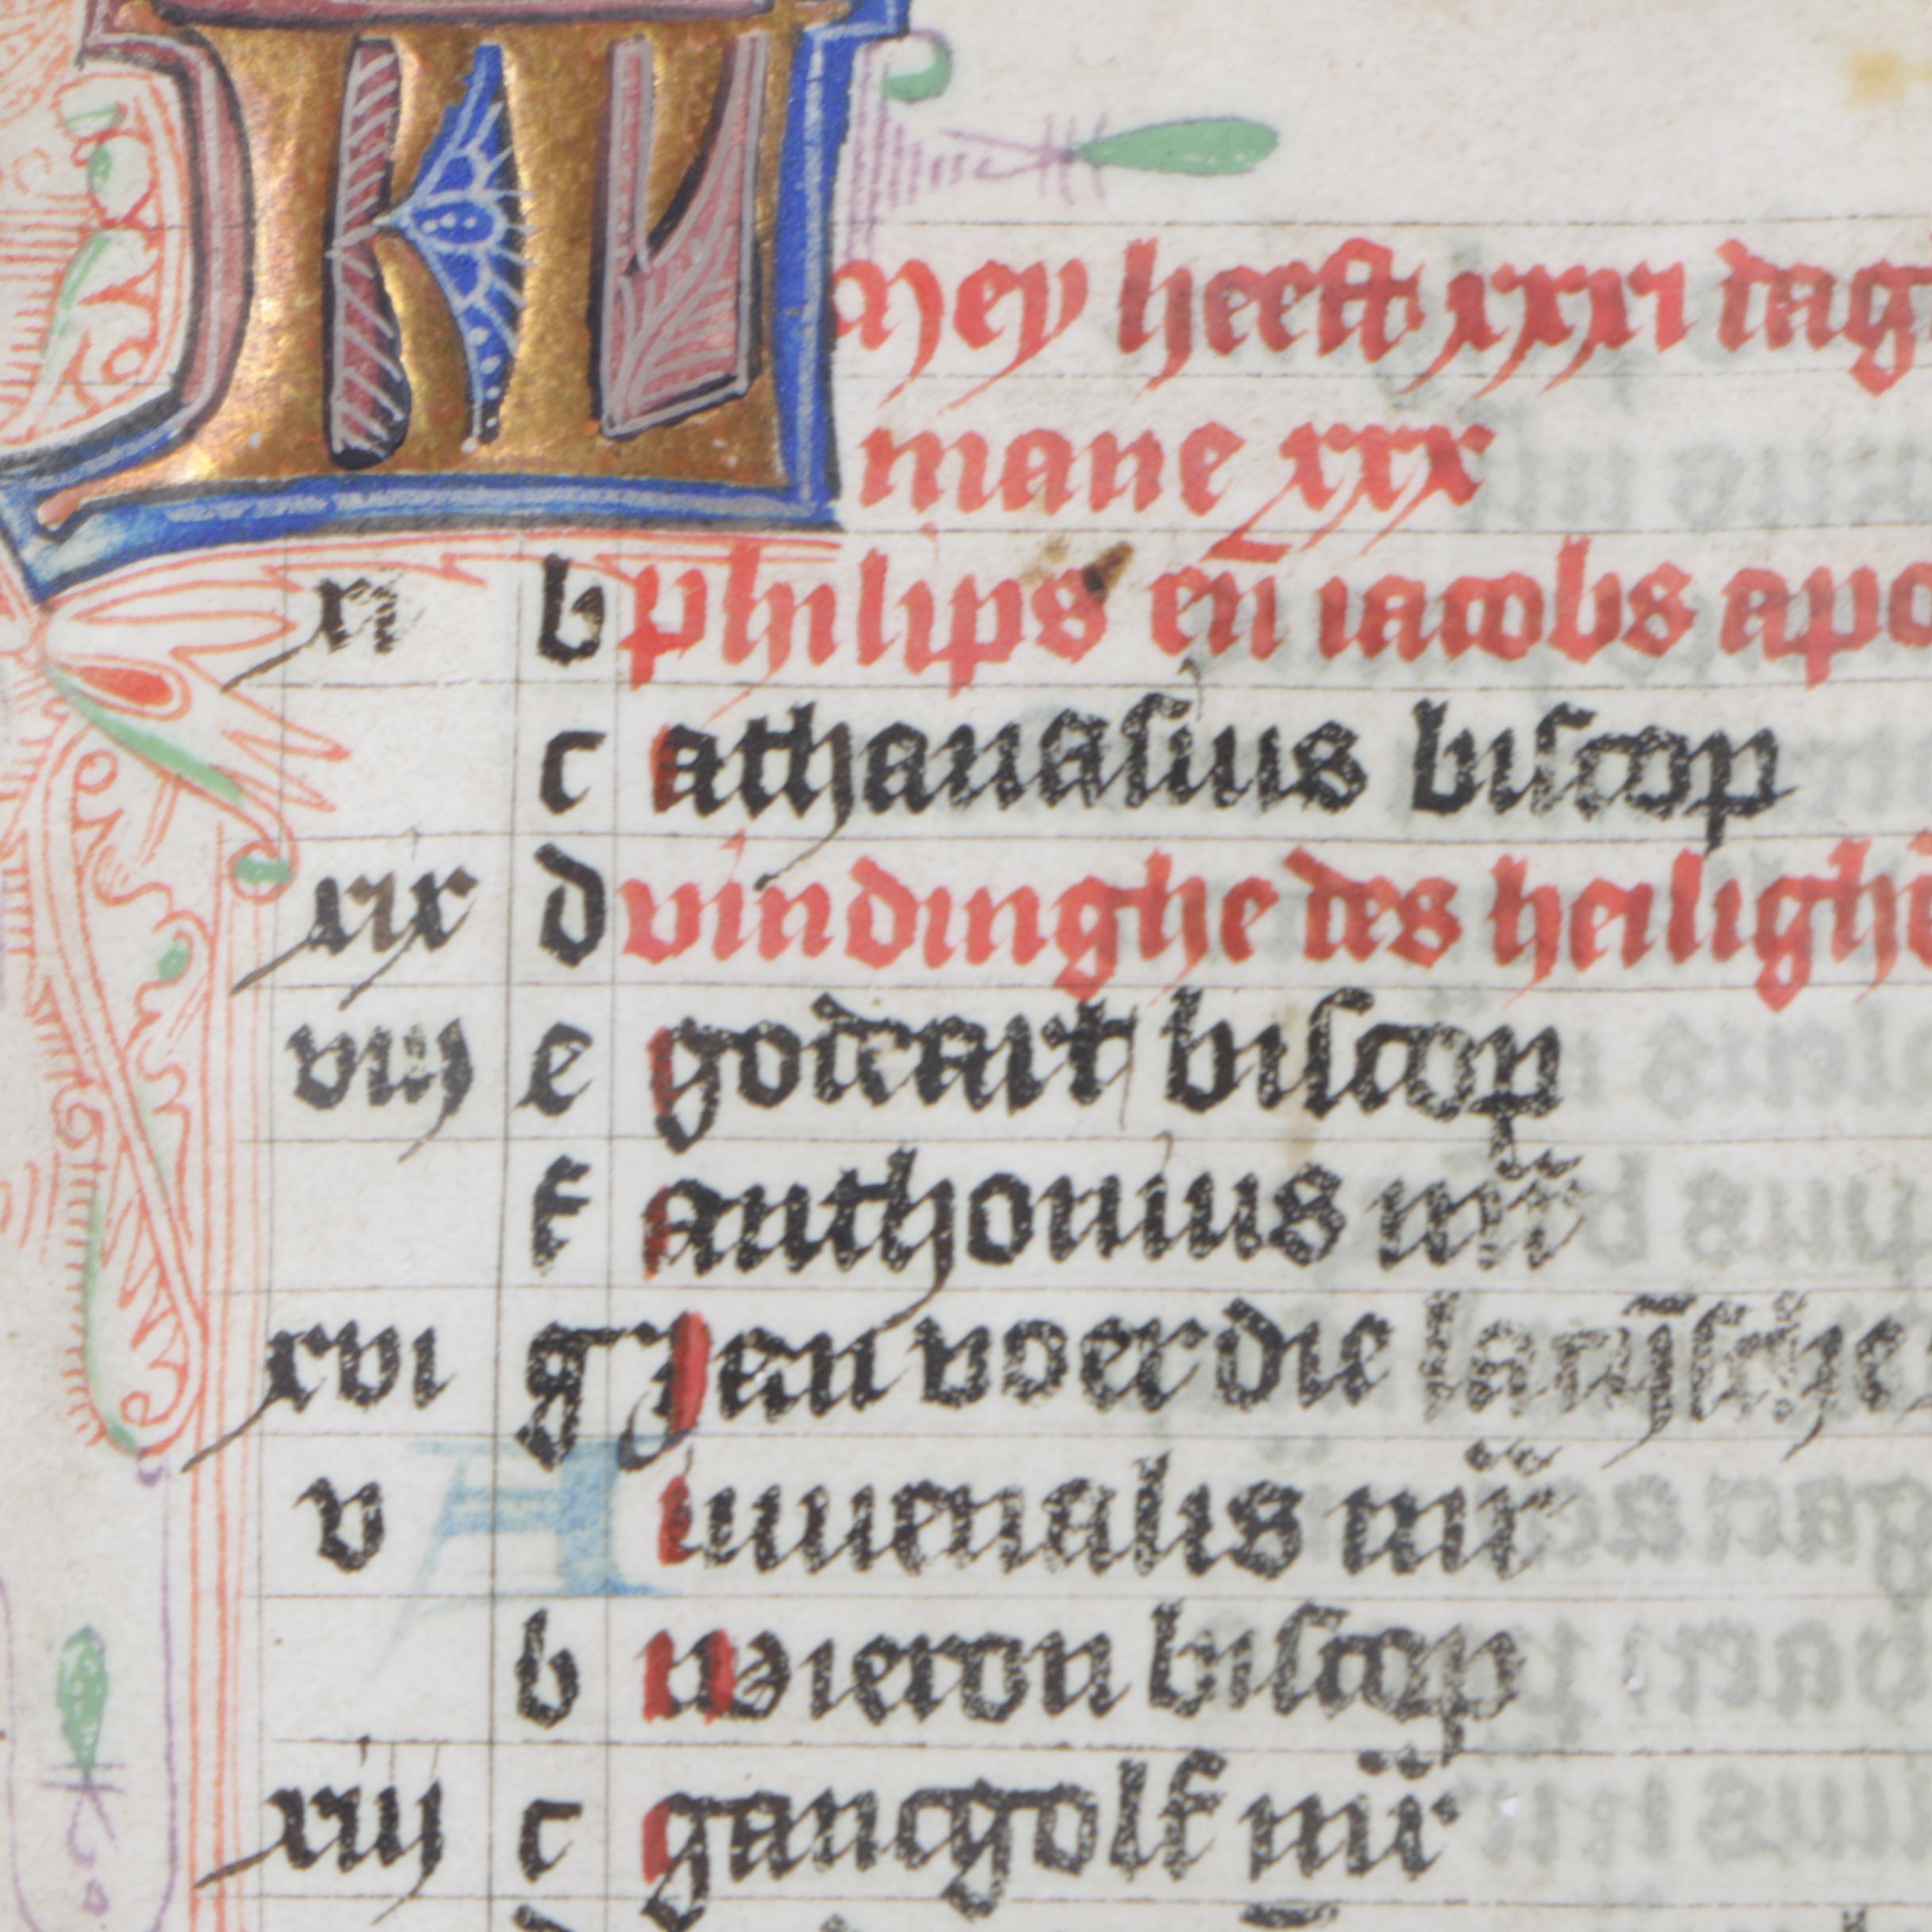 KL mey heeft xxxi dag
mane xxx
xi b philips en̄ iacobs apo
c athanasius biscop
xix d vindinghe des heiligh
viij e godeart biscop
f anthonius mr̄
xvi g Jan voer die latijsche
v A iuuenalis mr̄
b wieron biscop
xiij c gancgolf mr̄